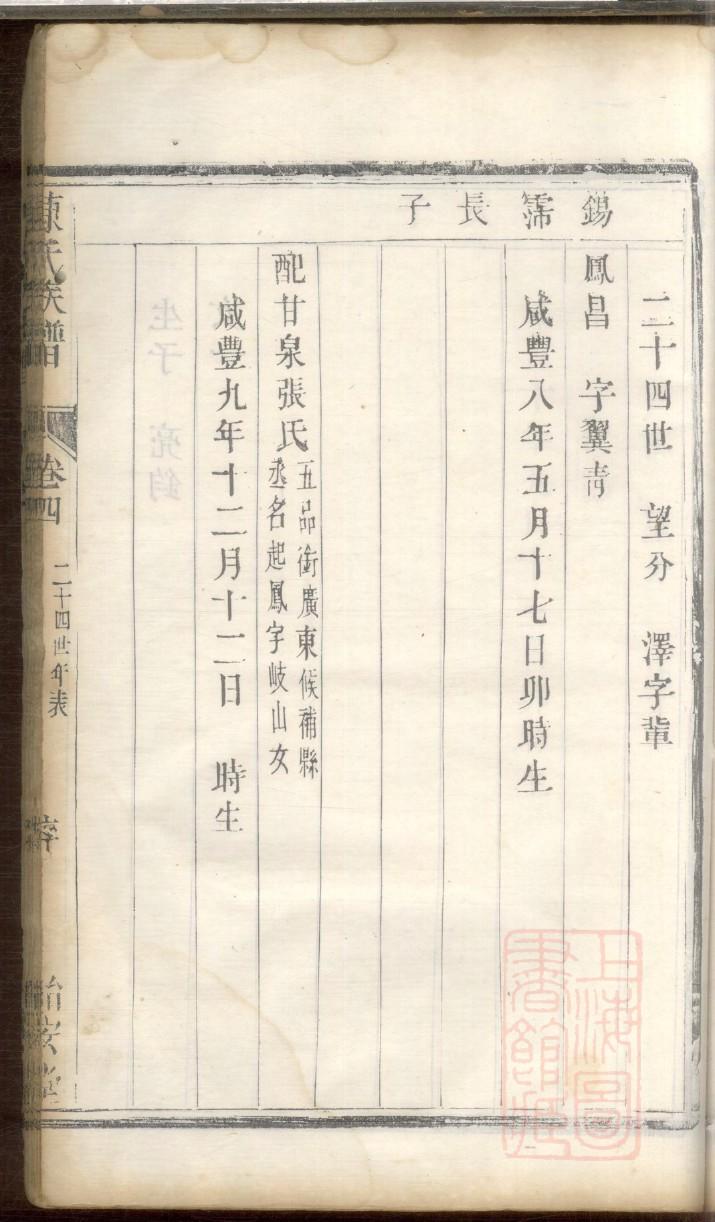 錫霈長子
二十四世 望分 澤字輩
鳳昌 字翼青
咸豐八年五月十七日卯時生
配甘泉張氏五品銜廣東候補縣
丞名起鳳字岐山女
咸豐九年十二月十二日 時生
生子 亮鈞
氏族譜 卷四 二十四世年表
上海圖
書館藏